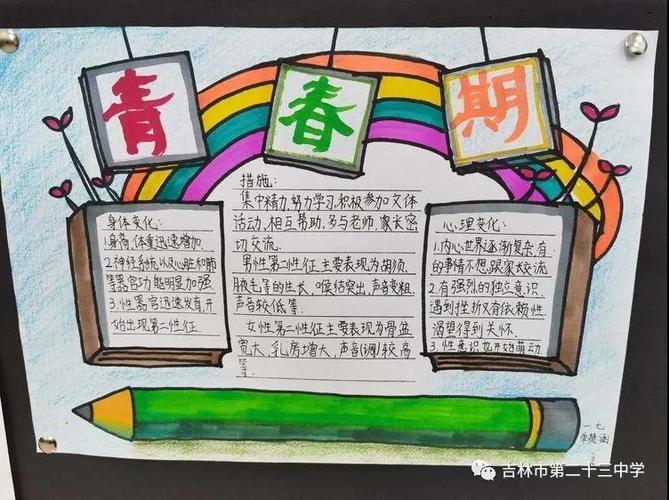 青春期
身体变化:
1.身高、体重迅速增加.
2.神经系统以及心脏和肺
等器官功能明显加强
3.性器官迅速发育,开
始出现第二性征.
措施:
集中精力,努力学习,积极参加文体
活动,相互帮助,多与老师,家长密
切交流.
男性第二性征主要表现为胡须,
腋毛等的生长,喉结突出,声音变粗
声音较低等.
女性第二性征主要表现为骨盆
宽大,乳房增大,声音(调)较高
等.
心理变化:
1.内心世界逐渐复杂,有
的事情不想跟家长交流
2.有强烈的独立意识,
遇到挫折又有依赖性
渴望得到关怀.
3.性意识也开始萌动
一七
吉林市第二十三中学